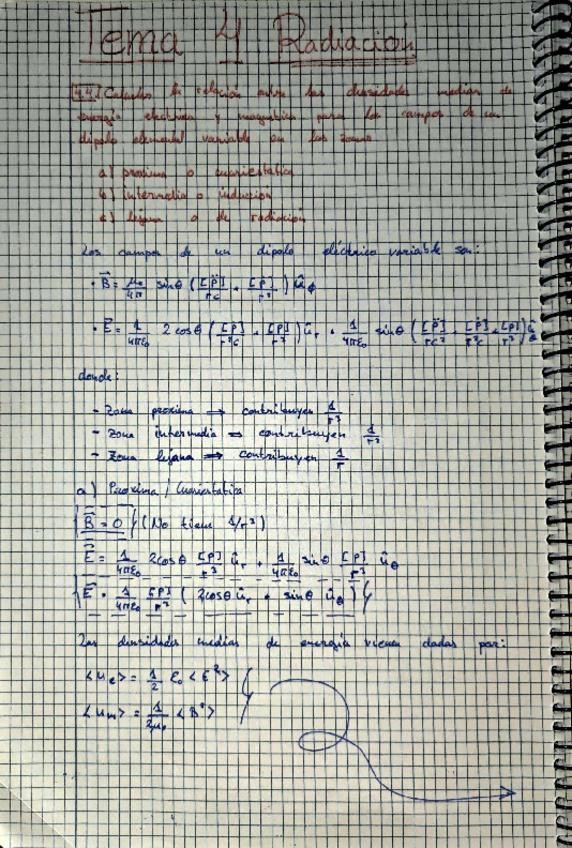 Tema 4 Radiación
4.4. Calcular la relación entre las densidades medias de
energía eléctrica y magnética para los campos de un
dipolo elemental variable en las zonas
a) próxima o cuasiestática
b) intermedia o inducción
c) lejana o de radiación
Los campos de un dipolo eléctrico variable son:
· B⃗ = μ₀/4π sinθ ([p̈]/rc + [ṗ]/r²) û_ϕ
· E⃗ = 1/4πε₀ 2cosθ ([ṗ]/r²c + [p]/r³) û_r + 1/4πε₀ sinθ ([p̈]/rc² + [ṗ]/r²c + [p]/r³) û_θ
donde:
- Zona próxima ⇒ contribuyen 1/r³
- Zona intermedia ⇒ contribuyen 1/r²
- Zona lejana ⇒ contribuyen 1/r
a) Próxima / Cuasiestática
B⃗ = 0 (No tiene 1/r³)
E⃗ = 1/4πε₀ 2cosθ [p]/r³ û_r + 1/4πε₀ sinθ [p]/r³ û_θ
E⃗ = 1/4πε₀ [p]/r³ (2cosθ û_r + sinθ û_θ)
Las densidades medias de energía vienen dadas por:
<u_e> = 1/2 ε₀ <E²>
<u_m> = 1/2μ₀ <B²>